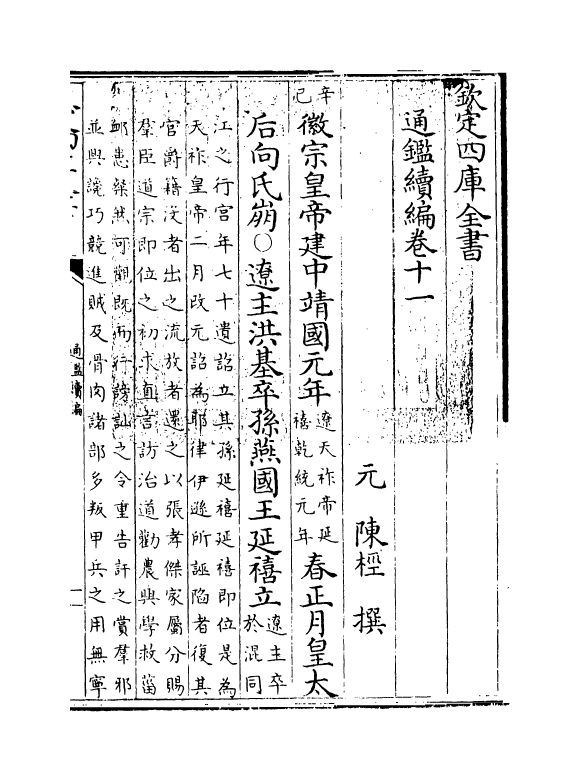 欽定四庫全書
通鑑續編卷十一
元 陳桱 撰
辛巳
徽宗皇帝建中靖國元年
遼天祚帝延
禧乾統元年
春正月皇太
后向氏崩○遼主洪基卒孫燕國王延禧立
遼主卒
於混同
江之行宫年七十遺詔立其孫延禧延禧即位是為
天祚皇帝二月改元詔為耶律伊遜所誣陷者復其
官爵籍没者出之流放者還之以張孝傑家屬分賜
羣臣道宗即位之初求直言訪治道勸農興學救菑
邮患粲然可觀既而行謗訕之令重告訐之賞羣邪
並興讒巧競進賊及骨肉諸部多叛甲兵之用無寧
通鑑續編
一